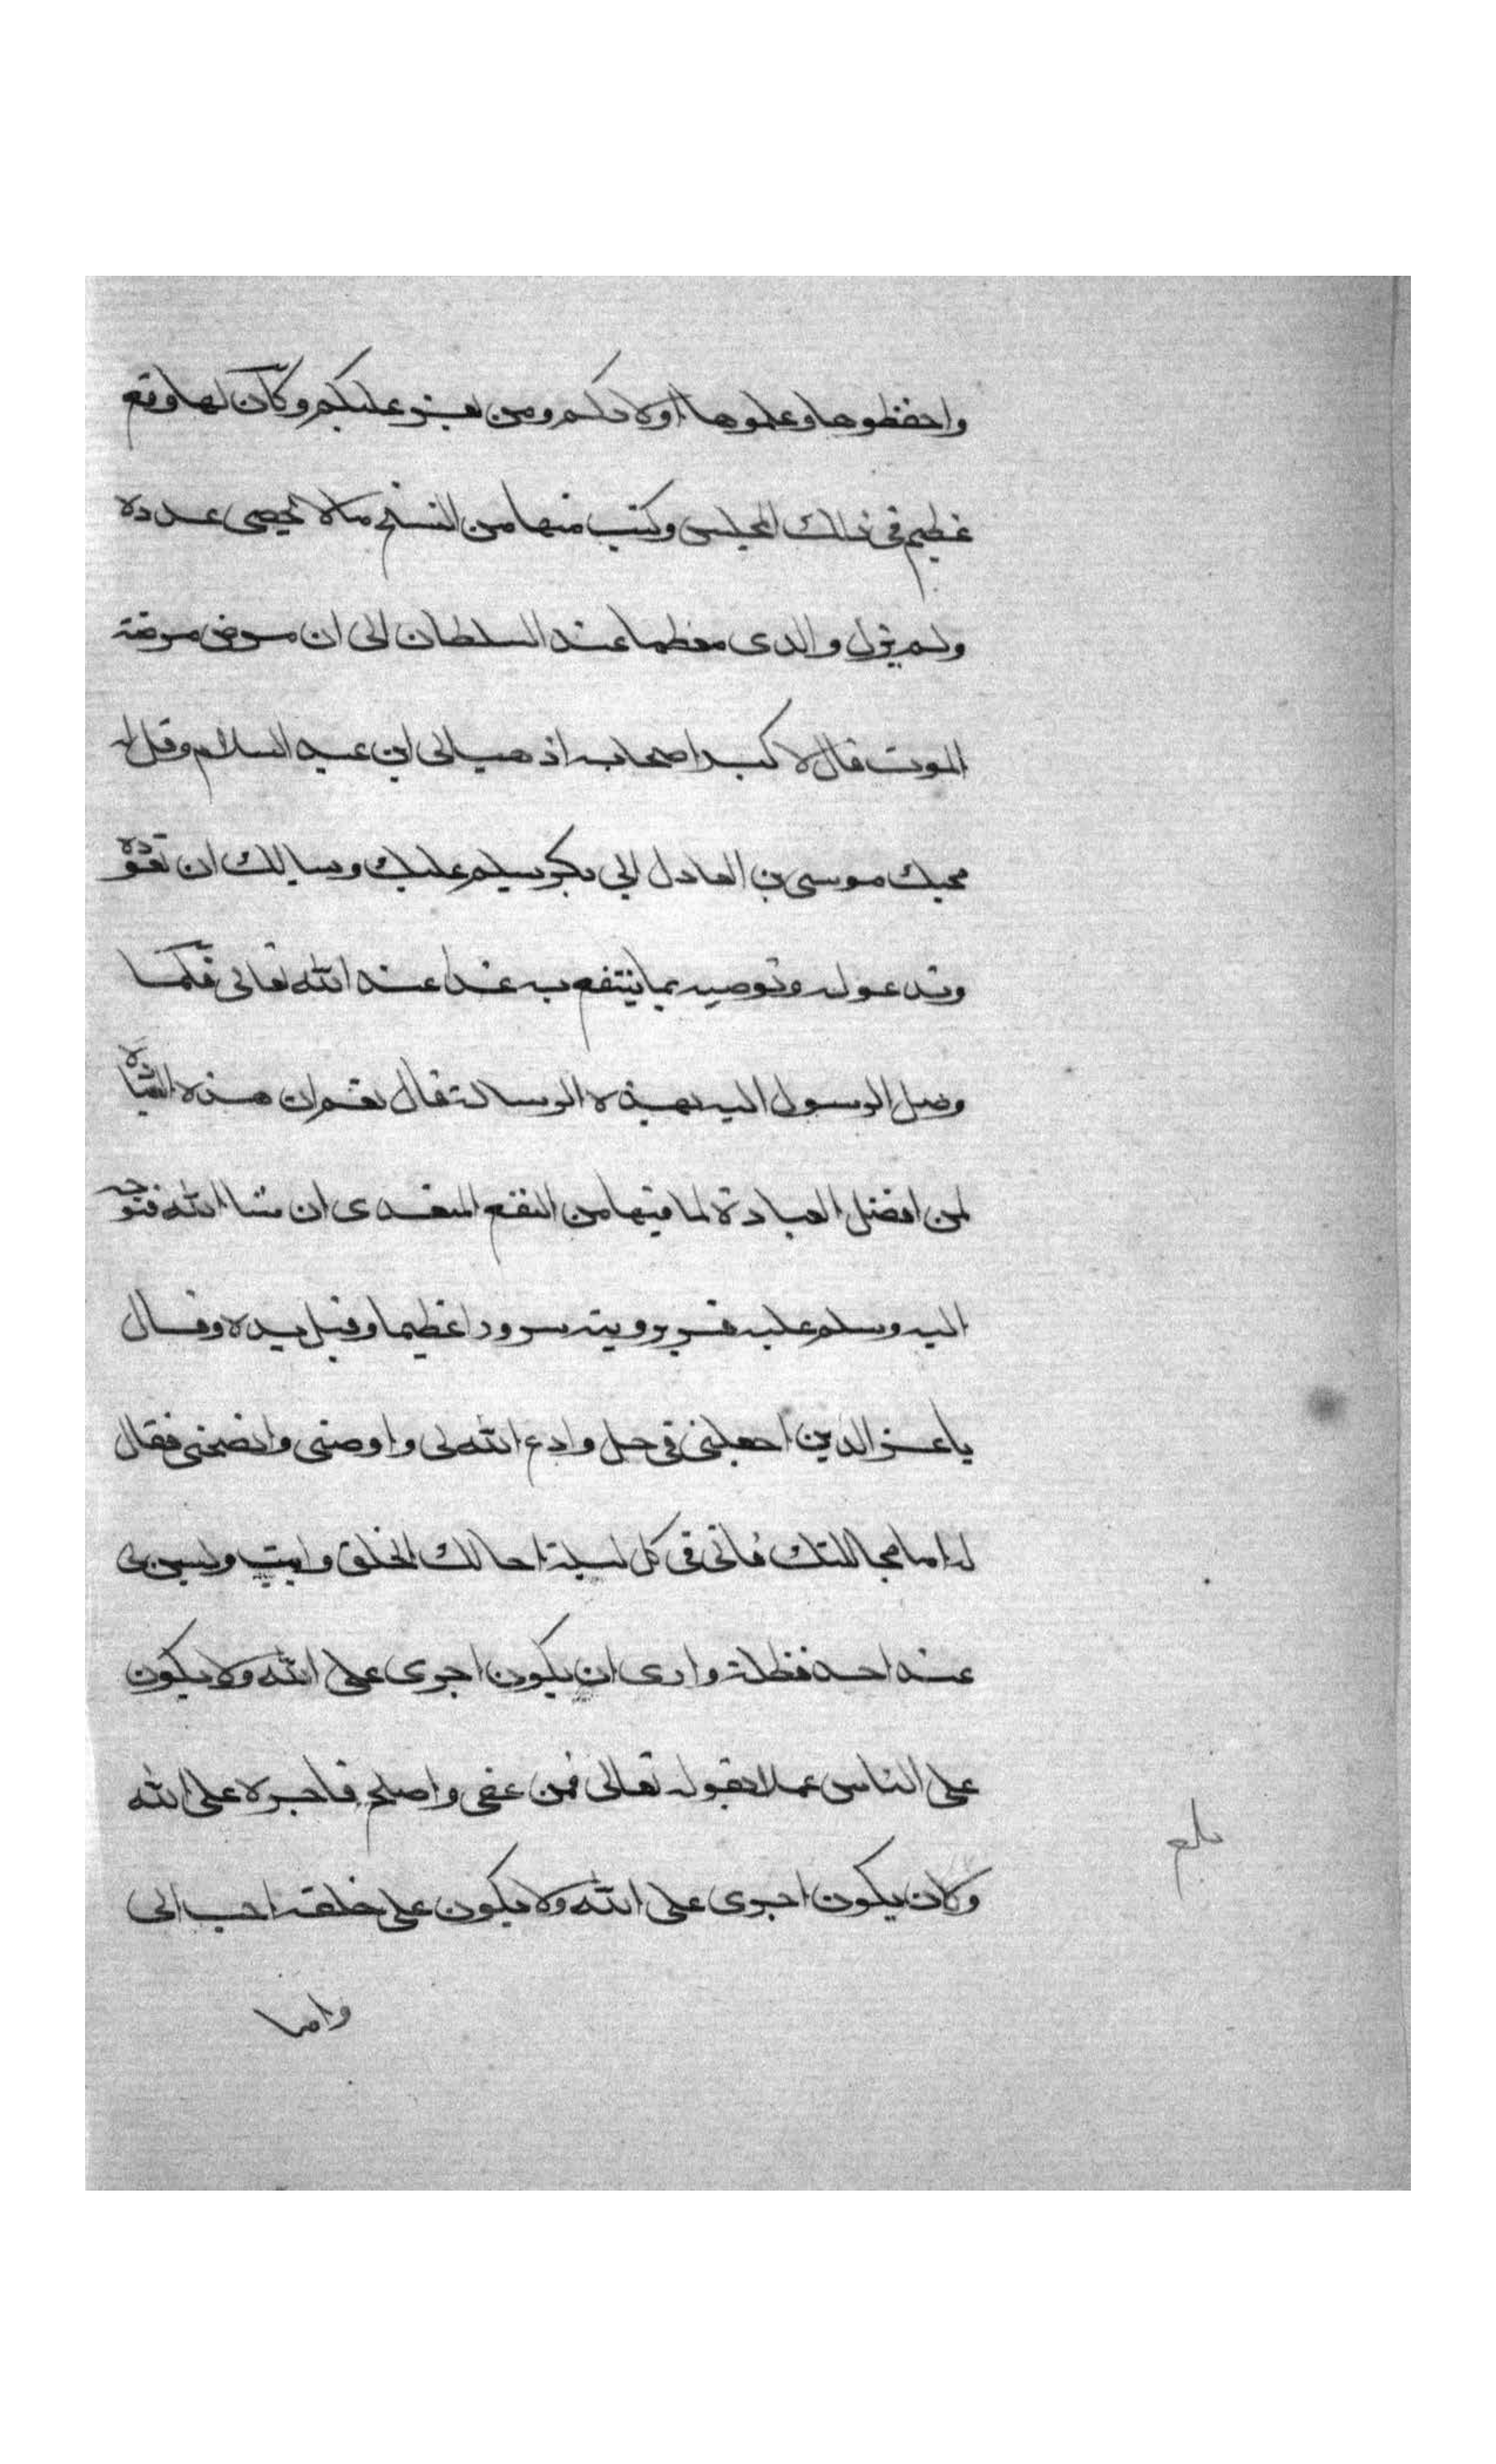 واحفظوها وعلموها اولادكم ومن يعز عليكم وكان لها وقع
عظيم في ذلك المجلس وكتب منها من النسخ ما لا يحصى عدده
ولم يزل والدى معظما عند السلطان الى ان مرض مرضة
الموت فقال لاكبر اصحابه اذهب الى ابن عبد السلام وقل له
محبك موسى بن العادل ابي بكر يسلم عليك ويسالك ان تعوده
وتدعو له وتوصيه بما ينتفع به غدا عند الله تعالى فلما
وصل الرسول اليه بهذه الرسالة قال نعم ان هذه العيادة
لمن افضل العبادة لما فيها من النفع المتعدى ان شا الله فتوجه
اليه وسلم عليه فسر برويته سرورا عظيما وقبل يده وقال
يا عز الدين اجعلنى في حل وادع الله لى واوصنى وانصحنى فقال
له اما محاللتك فانى في كل ليلة احالل الخلق وابيت وليس لى
عند احد مظلمة وارى ان يكون اجرى على الله ولا يكون
على الناس عملا بقوله تعالى فمن عفى واصلح فاجره على الله
ولان يكون اجرى على الله ولا يكون على خلقه احب الى
بلغ
واما